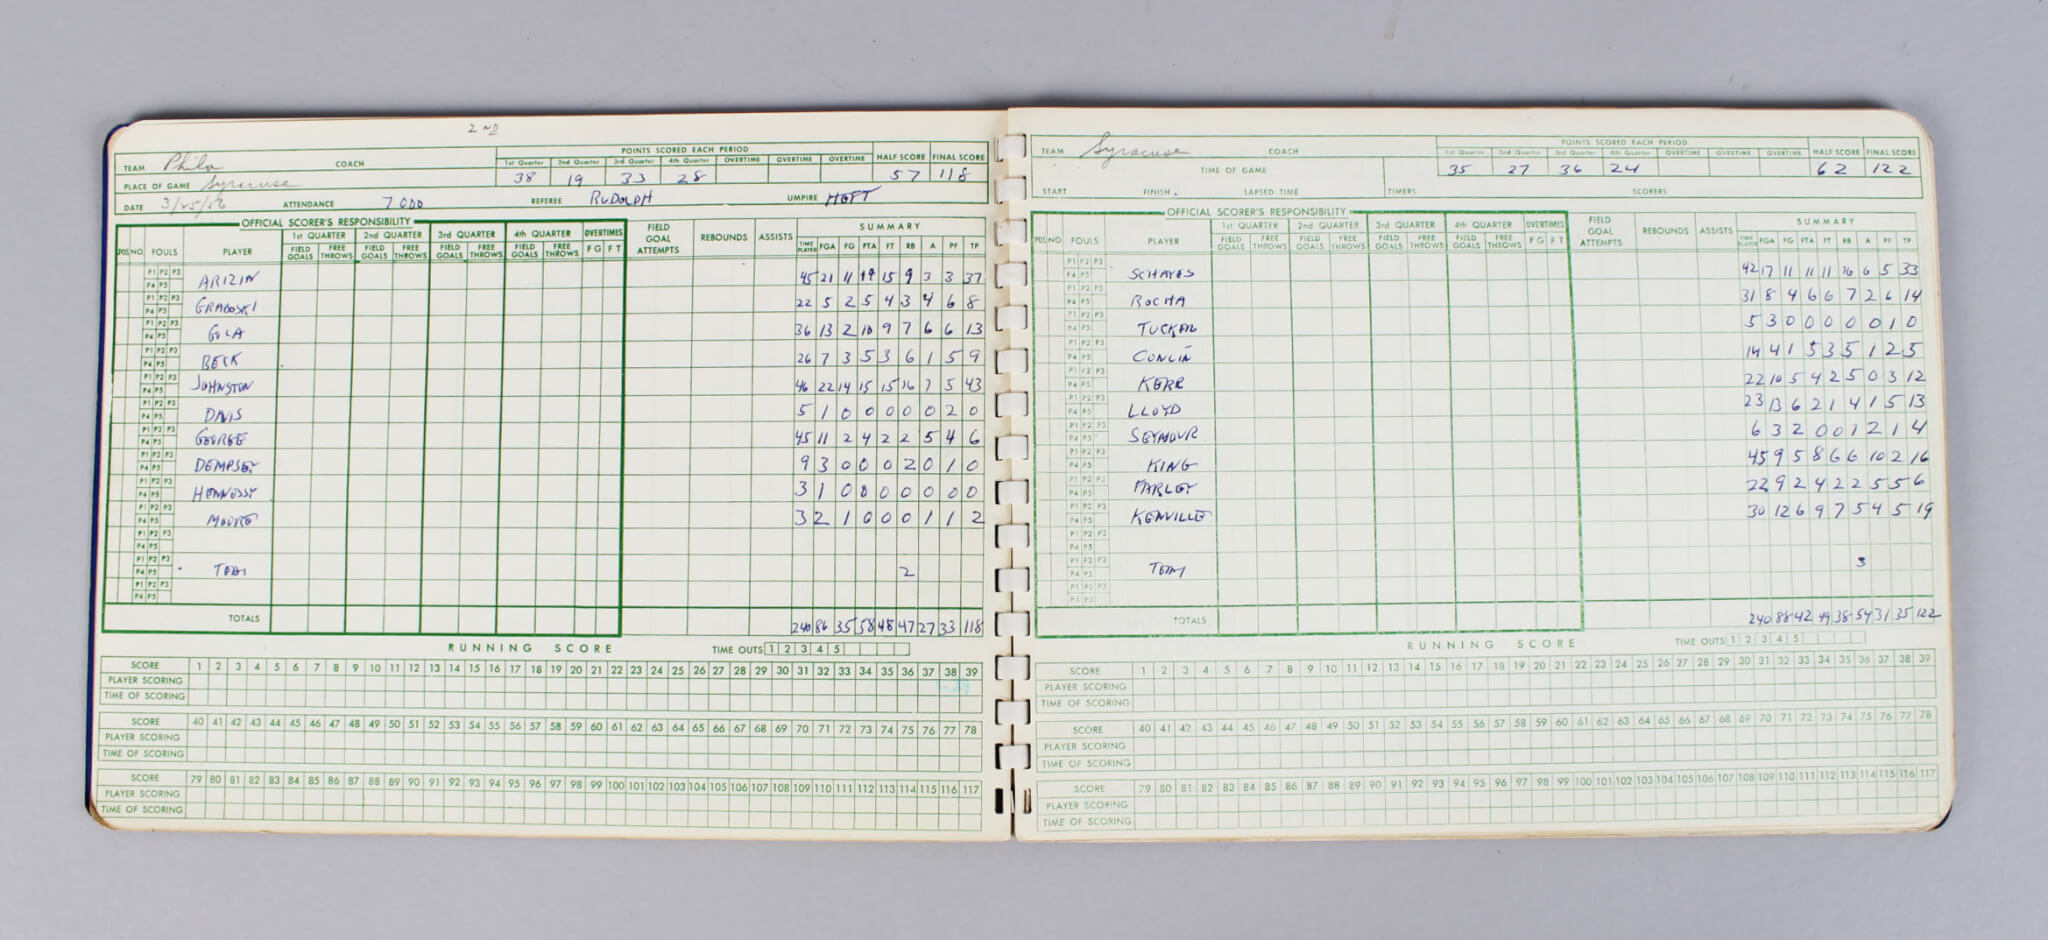 2 ND
TEAM Phila COACH POINTS SCORED EACH PERIOD
1st Quarter 2nd Quarter 3rd Quarter 4th Quarter OVERTIME OVERTIME OVERTIME HALF SCORE FINAL SCORE
PLACE OF GAME Syracuse 38 19 33 28 57 118
DATE 3/25/56 ATTENDANCE 7000 REFEREE RUDOLPH UMPIRE HEFT
OFFICIAL SCORER'S RESPONSIBILITY
POS NO. FOULS PLAYER 1st QUARTER 2nd QUARTER 3rd QUARTER 4th QUARTER OVERTIMES FIELD GOAL ATTEMPTS REBOUNDS ASSISTS SUMMARY
FIELD GOALS FREE THROWS FIELD GOALS FREE THROWS FIELD GOALS FREE THROWS FIELD GOALS FREE THROWS F G F T TIME PLAYED FGA FG FTA FT RB A PF TP
P1 P2 P3 P4 P5 ARIZIN 45 21 11 19 15 9 3 3 37
P1 P2 P3 P4 P5 GRABOSKI 22 5 2 5 4 3 4 6 8
P1 P2 P3 P4 P5 GOLA 36 13 2 10 9 7 6 6 13
P1 P2 P3 P4 P5 BECK 26 7 3 5 3 6 1 5 9
P1 P2 P3 P4 P5 JOHNSTON 46 22 14 15 15 16 7 5 43
P1 P2 P3 P4 P5 DAVIS 5 1 0 0 0 0 0 2 0
P1 P2 P3 P4 P5 GEORGE 45 11 2 4 2 2 5 4 6
P1 P2 P3 P4 P5 DEMPSEY 9 3 0 0 0 2 0 1 0
P1 P2 P3 P4 P5 HENNESSY 3 1 0 0 0 0 0 0 0
P1 P2 P3 P4 P5 MOORE 3 2 1 0 0 0 1 1 2
P1 P2 P3 P4 P5
P1 P2 P3 P4 P5 TEAM 2
P1 P2 P3 P4 P5
TOTALS 240 86 35 58 48 47 27 33 118
RUNNING SCORE TIME OUTS 1 2 3 4 5
SCORE 1 2 3 4 5 6 7 8 9 10 11 12 13 14 15 16 17 18 19 20 21 22 23 24 25 26 27 28 29 30 31 32 33 34 35 36 37 38 39
PLAYER SCORING
TIME OF SCORING
SCORE 40 41 42 43 44 45 46 47 48 49 50 51 52 53 54 55 56 57 58 59 60 61 62 63 64 65 66 67 68 69 70 71 72 73 74 75 76 77 78
PLAYER SCORING
TIME OF SCORING
SCORE 79 80 81 82 83 84 85 86 87 88 89 90 91 92 93 94 95 96 97 98 99 100 101 102 103 104 105 106 107 108 109 110 111 112 113 114 115 116 117
PLAYER SCORING
TIME OF SCORING
TEAM Syracuse COACH POINTS SCORED EACH PERIOD
1st Quarter 2nd Quarter 3rd Quarter 4th Quarter OVERTIME OVERTIME OVERTIME HALF SCORE FINAL SCORE
TIME OF GAME 35 27 36 24 62 122
START FINISH LAPSED TIME TIMERS SCORERS
OFFICIAL SCORER'S RESPONSIBILITY
POS NO. FOULS PLAYER 1st QUARTER 2nd QUARTER 3rd QUARTER 4th QUARTER OVERTIMES FIELD GOAL ATTEMPTS REBOUNDS ASSISTS SUMMARY
FIELD GOALS FREE THROWS FIELD GOALS FREE THROWS FIELD GOALS FREE THROWS FIELD GOALS FREE THROWS F G F T TIME PLAYED FGA FG FTA FT RB A PF TP
P1 P2 P3 P4 P5 SCHAYES 42 17 11 11 11 16 6 5 33
P1 P2 P3 P4 P5 ROCHA 31 8 4 6 6 7 2 6 14
P1 P2 P3 P4 P5 TUCKER 5 3 0 0 0 0 0 1 0
P1 P2 P3 P4 P5 CONLIN 14 4 1 5 3 5 1 2 5
P1 P2 P3 P4 P5 KERR 22 10 5 4 2 5 0 3 12
P1 P2 P3 P4 P5 LLOYD 23 13 6 2 1 4 1 5 13
P1 P2 P3 P4 P5 SEYMOUR 6 3 2 0 0 1 2 1 4
P1 P2 P3 P4 P5 KING 45 9 5 8 6 6 10 2 16
P1 P2 P3 P4 P5 FARLEY 22 9 2 4 2 2 5 5 6
P1 P2 P3 P4 P5 KENVILLE 30 12 6 9 7 5 4 5 19
P1 P2 P3 P4 P5
P1 P2 P3 P4 P5 TEAM 3
P1 P2 P3 P4 P5
TOTALS 240 88 42 49 38 54 31 35 122
RUNNING SCORE TIME OUTS 1 2 3 4 5
SCORE 1 2 3 4 5 6 7 8 9 10 11 12 13 14 15 16 17 18 19 20 21 22 23 24 25 26 27 28 29 30 31 32 33 34 35 36 37 38 39
PLAYER SCORING
TIME OF SCORING
SCORE 40 41 42 43 44 45 46 47 48 49 50 51 52 53 54 55 56 57 58 59 60 61 62 63 64 65 66 67 68 69 70 71 72 73 74 75 76 77 78
PLAYER SCORING
TIME OF SCORING
SCORE 79 80 81 82 83 84 85 86 87 88 89 90 91 92 93 94 95 96 97 98 99 100 101 102 103 104 105 106 107 108 109 110 111 112 113 114 115 116 117
PLAYER SCORING
TIME OF SCORING